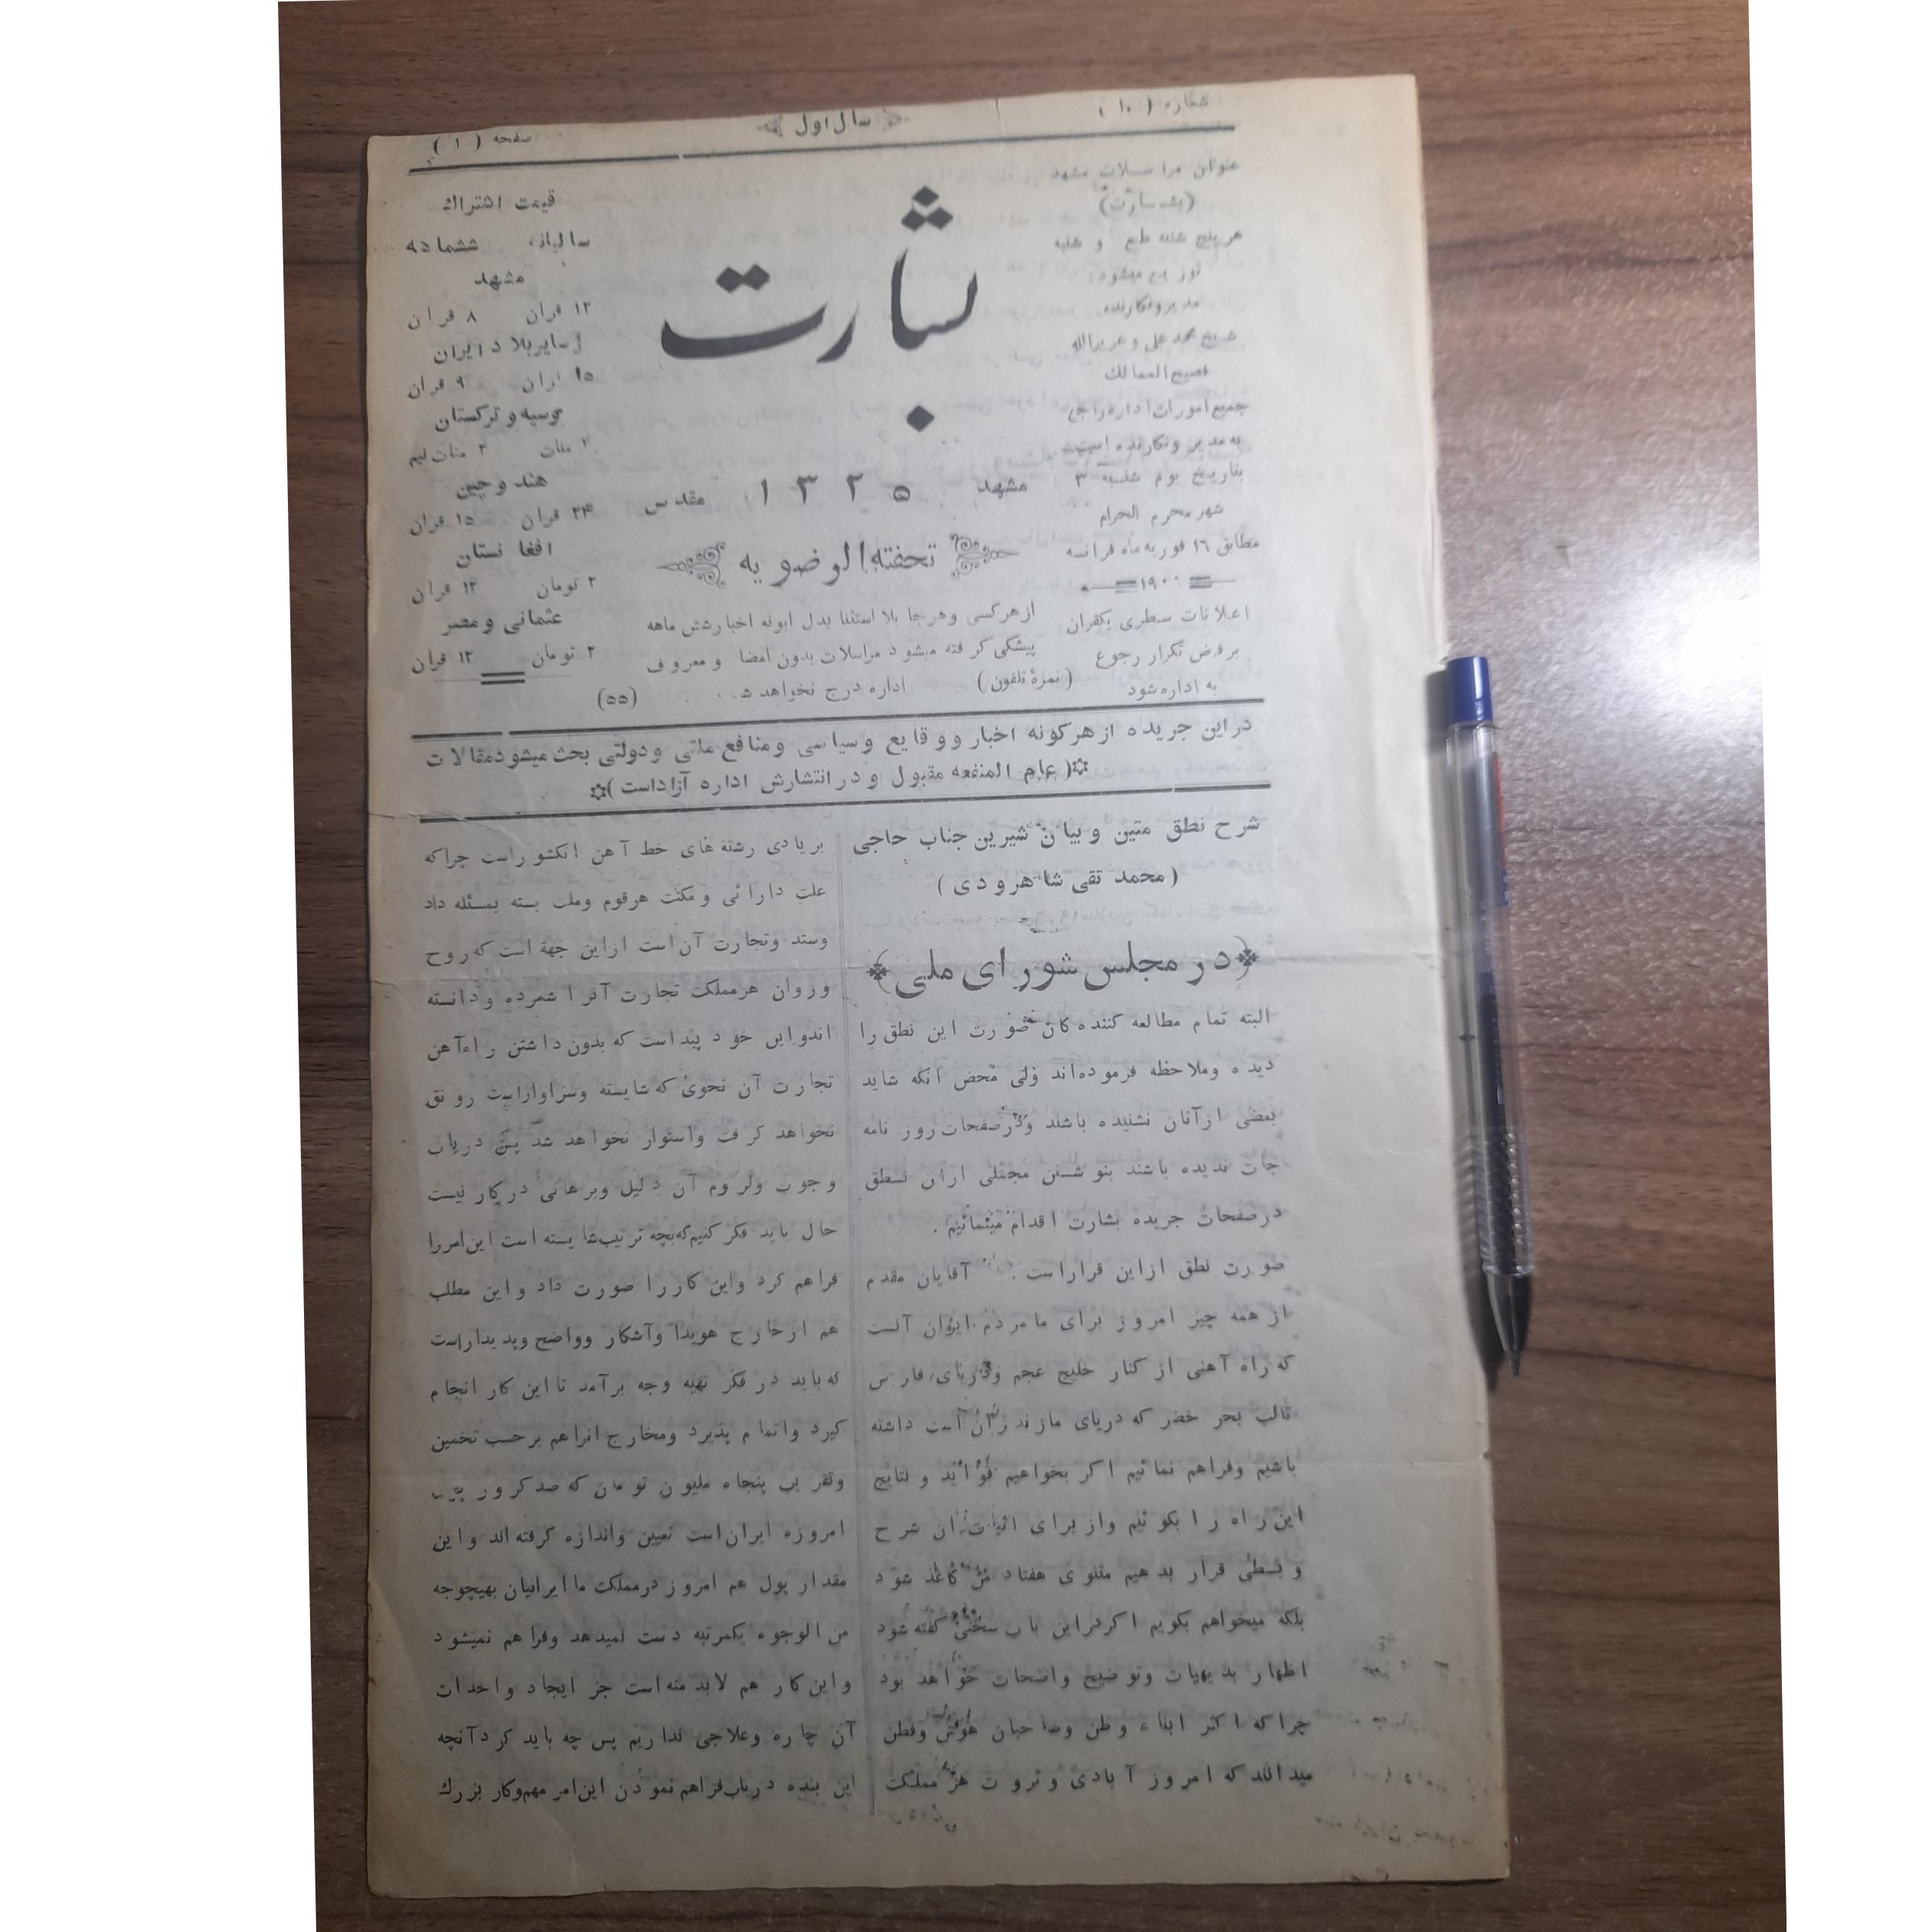 شماره ( ۱۰ )
سال اول
صفحه ( ۱ )
عنوان مراسلات مشهد
(بشارت)
هر پنج شنبه طبع و شنبه
توزیع میشود
مدیر و نگارنده
شیخ محمد علی و عزیزالله
فصیح الممالك
جمیع امورات اداره راجع
به مدیر و نگارنده است
بتاریخ یوم شنبه ۳
شهر محرم الحرام
مطابق ۱۶ فوریه ماه فرانسه
اعلانات سطری یکقران
برفرض تکرار رجوع
به اداره شود
بشارت
مشهد ۱۳۲۵ مقدس
تحفته الرضویه
از هر کسی و هر جا بلا استثنا بدل ابونه اخبار شش ماهه
پیشکی کرفته میشود مراسلات بدون امضا و معروف
(نمرهٔ تلفون) اداره درج نخواهد (۵۵)
قیمت اشتراك
سالیانه ششماهه
مشهد
۱۲ قران ۸ قران
سایر بلاد ایران
۱۵ قران ۹ قران
روسیه و ترکستان
منات ۲ منات نیم
هند و چین
۲۴ قران ۱۵ قران
افغانستان
۲ تومان ۱۲ قران
عثمانی و مصر
۲ تومان ۱۲ قران
در این جریده از هر کونه اخبار و وقایع و سیاسی و منافع ملتی و دولتی بحث میشود مقالات
(عام المنفعه مقبول و در انتشارش اداره آزاد است)
شرح نطق متین و بیان شیرین جناب حاجی
(محمد تقی شاهرودی)
﴿در مجلس شورای ملی﴾
البته تمام مطالعه کننده کان صورت این نطق را
دیده وملاحظه فرموده‌اند ولی محض انکه شاید
بعضی از آنان نشنیده باشند و در صفحات روز نامه
جات ندیده باشند بنوشتن مجملی ازان نطق
در صفحات جریده بشارت اقدام مینمائیم .
صورت نطق ازاین قراراست آقایان مقدم
از همه چیز امروز برای ما مردم ایران آنست
که راه آهنی از کنار خلیج عجم و دریای فارس
تالب بحر خضر که دریای مازندران است داشته
باشیم وفراهم نمائیم اکر بخواهیم فوائد و نتایج
این راه را بکوئیم واز برای اثبات ان شرح
و بسطی قرار بدهیم مثنوی هفتاد من کاغذ شود
بلکه میخواهم بکویم اکر دراین باب سخنی کفته شود
اظهار بدیهیات وتوضیح واضحات خواهد بود
چرا که اکثر ابناء وطن وصاحبان هوش وفطن
میدانند که امروز آبادی و ثروت هر مملکت
بر یادی رشته های خط آهن انکشور راست چراکه
علت دارائی و مکنت هرقوم وملت بسته بمسئله داد
وستد وتجارت آن است ازاین جهة است که روح
وروان هرمملکت تجارت آنرا شمرده ودانسته
اندواین خود پیداست که بدون داشتن راه‌آهن
تجارت آن نحوی که شایسته وسزاوار است رونق
نخواهد کرفت واستوار نخواهد شد پس درباب
وجوب ولزوم آن دلیل وبرهانی در کار نیست
حال باید فکر کنیم که بچه ترتیب شایسته است این امر را
فراهم کرد واین کار را صورت داد و این مطلب
هم از خارج هویدا وآشکار وواضح وپدیدار است
که باید در فکر تهیه وجه برآمد تا این کار انجام
کیرد واتمام پذیرد ومخارج انرا هم برحسب تخمین
وتقریب پنجاه ملیون تومان که صد کرور
امروزه ایران است تعیین واندازه کرفته اند واین
مقدار پول هم امروز در مملکت ما ایرانیان بهیچوجه
من الوجوه یکمرتبه دست نمیدهد وفراهم نمیشود
و این کار هم لابد منه است جز ایجاد واحداث
آن چاره وعلاجی نداریم پس چه باید کرد آنچه
این بنده درباب فراهم نمودن این امر مهم وکار بزرك